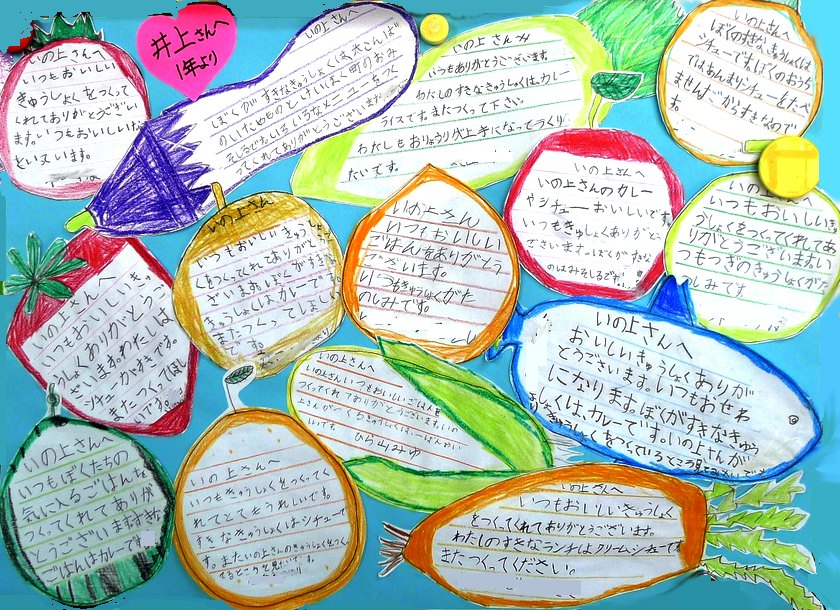 井上さんへ
1年より
いの上さんへ
いつもおいしい
きゅうしょくをつくって
くれてありがとうござい
ます。いつもおいしいな
といえいます。
いの上さんへ
ぼくがすきなきゅうしょくは、大さんば
いの上さんへ
いつもありがとうございます。
わたしのすきなきゅうしょくは、カレー
ライスです。またつくって下さい。
わたしもおりょうり
たいです。
いの上さんへ
ぼくのすきなきゅうしょくは
シチューです。ぼくのおうち
ではあんまりシチューをたべ
ません。だからすきなので
す。
いの上さんへ
いの上さんのカレー
やシチューおいしいです。
いつもきゅしょくありがと
うございます。ぼくがすきな
のはみそしるです。
いの上さんへ
いつもおいしいき
うしょくをつくってくれてあ
りがとうございます。い
つもつぎのきゅうしょくがた
のしみです。
いの上さんへ
いつもおいしいきゅうしょ
くをつくってくれてありがとう
ございます。ぼくがすきな
きゅうしょくはカレーです。
またつくってしょしい
です。
いの上さん
いつもおいしい
ごはんをありがとう
ございます。
いつもきゅうしょくがた
のしみです。
いの上さんへ
いつもおいしいきゅ
うしょくありがとうご
ざいます。わたしは
シチューがすきです。
またつくってほし
いです。
いの上さんへ
いの上さんいつもおいしいごはんを
つくってくれてありがとうございます。いの
ひら山みゆ
いの上さんへ
おいしいきゅうしょくありが
とうございます。いつもおせわ
になります。ぼくがすきなきゅう
しょくは、カレーです。いの上さんが
きゅうしょくをつくっているところ見
いの上さんへ
いつもぼくたちの
気に入るごはんを
つくってくれてありが
とうございます。すきな
ごはんはカレーです。
いの上さんへ
いつもきゅうしょくをつくってく
れてとてもうれしいです。
すきなきゅうしょくはシチューで
す。またいの上さんのきゅうしょくをつくっ
てるところを見たいです。
いの上さんへ
いつもおいしいきゅうしょく
をつくってくれてありがとうございます。
わたしのすきなランチはクリームシチューです。
またつくってください。